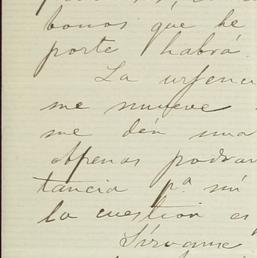 bonos que he
porte habrá
La urgenci
me mueve
me dén una
Apenas podrán
tancia pª mí
la cuestion es
Sírvame